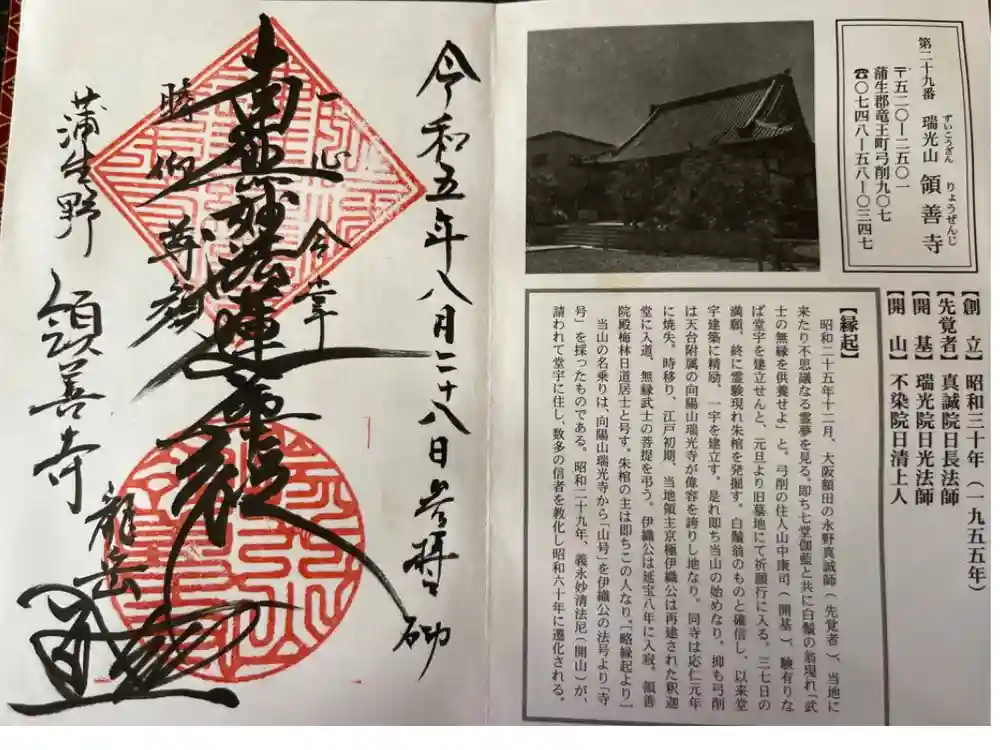 第二十九番 瑞光山 領善寺
ずいこうざん りょうぜんじ
〒五二〇―二五〇一
蒲生郡竜王町弓削九〇七
☎〇七四八―五八―〇三四七
【創　立】昭和三十年（一九五五年）
【先覚者】真誠院日長法師
【開　基】瑞光院日光法師
【開　山】不染院日清上人
【縁起】
昭和二十五年十二月、大阪額田の永野真誠師（先覚者）、当地に
来たり不思議なる霊夢を見る。即ち七堂伽藍と共に白鬚の翁現れ「武
士の無縁を供養せよ」と。弓削の住人山中康司（開基）、験有りな
ば堂宇を建立せんと、元旦より旧墓地にて祈願行に入る。三七日の
満願、終に霊験現れ朱棺を発掘す。白鬚翁のものと確信し、以来堂
宇建築に精励、一宇を建立す。是れ即ち当山の始めなり。抑も弓削
は天台附属の向陽山瑞光寺が偉容を誇りし地なり。同寺は応仁元年
に焼失。時移り、江戸初期、当地領主京極伊織公は再建された釈迦
堂に入道、無縁武士の菩提を弔う。伊織公は延宝八年に入寂。領善
院殿梅林日道居士と号す。朱棺の主は即ちこの人なり。「略縁起より」
当山の名乗りは、向陽山瑞光寺から「山号」を伊織公の法号より「寺
号」を採ったものである。昭和二十九年、義永妙清法尼（開山）が、
請われて堂宇に住し、数多の信者を教化し昭和六十年に遷化される。
令和五年八月二十八日
一心合掌
南無妙法蓮華経
瞻仰尊顔
蒲生野 領善寺
龍岳